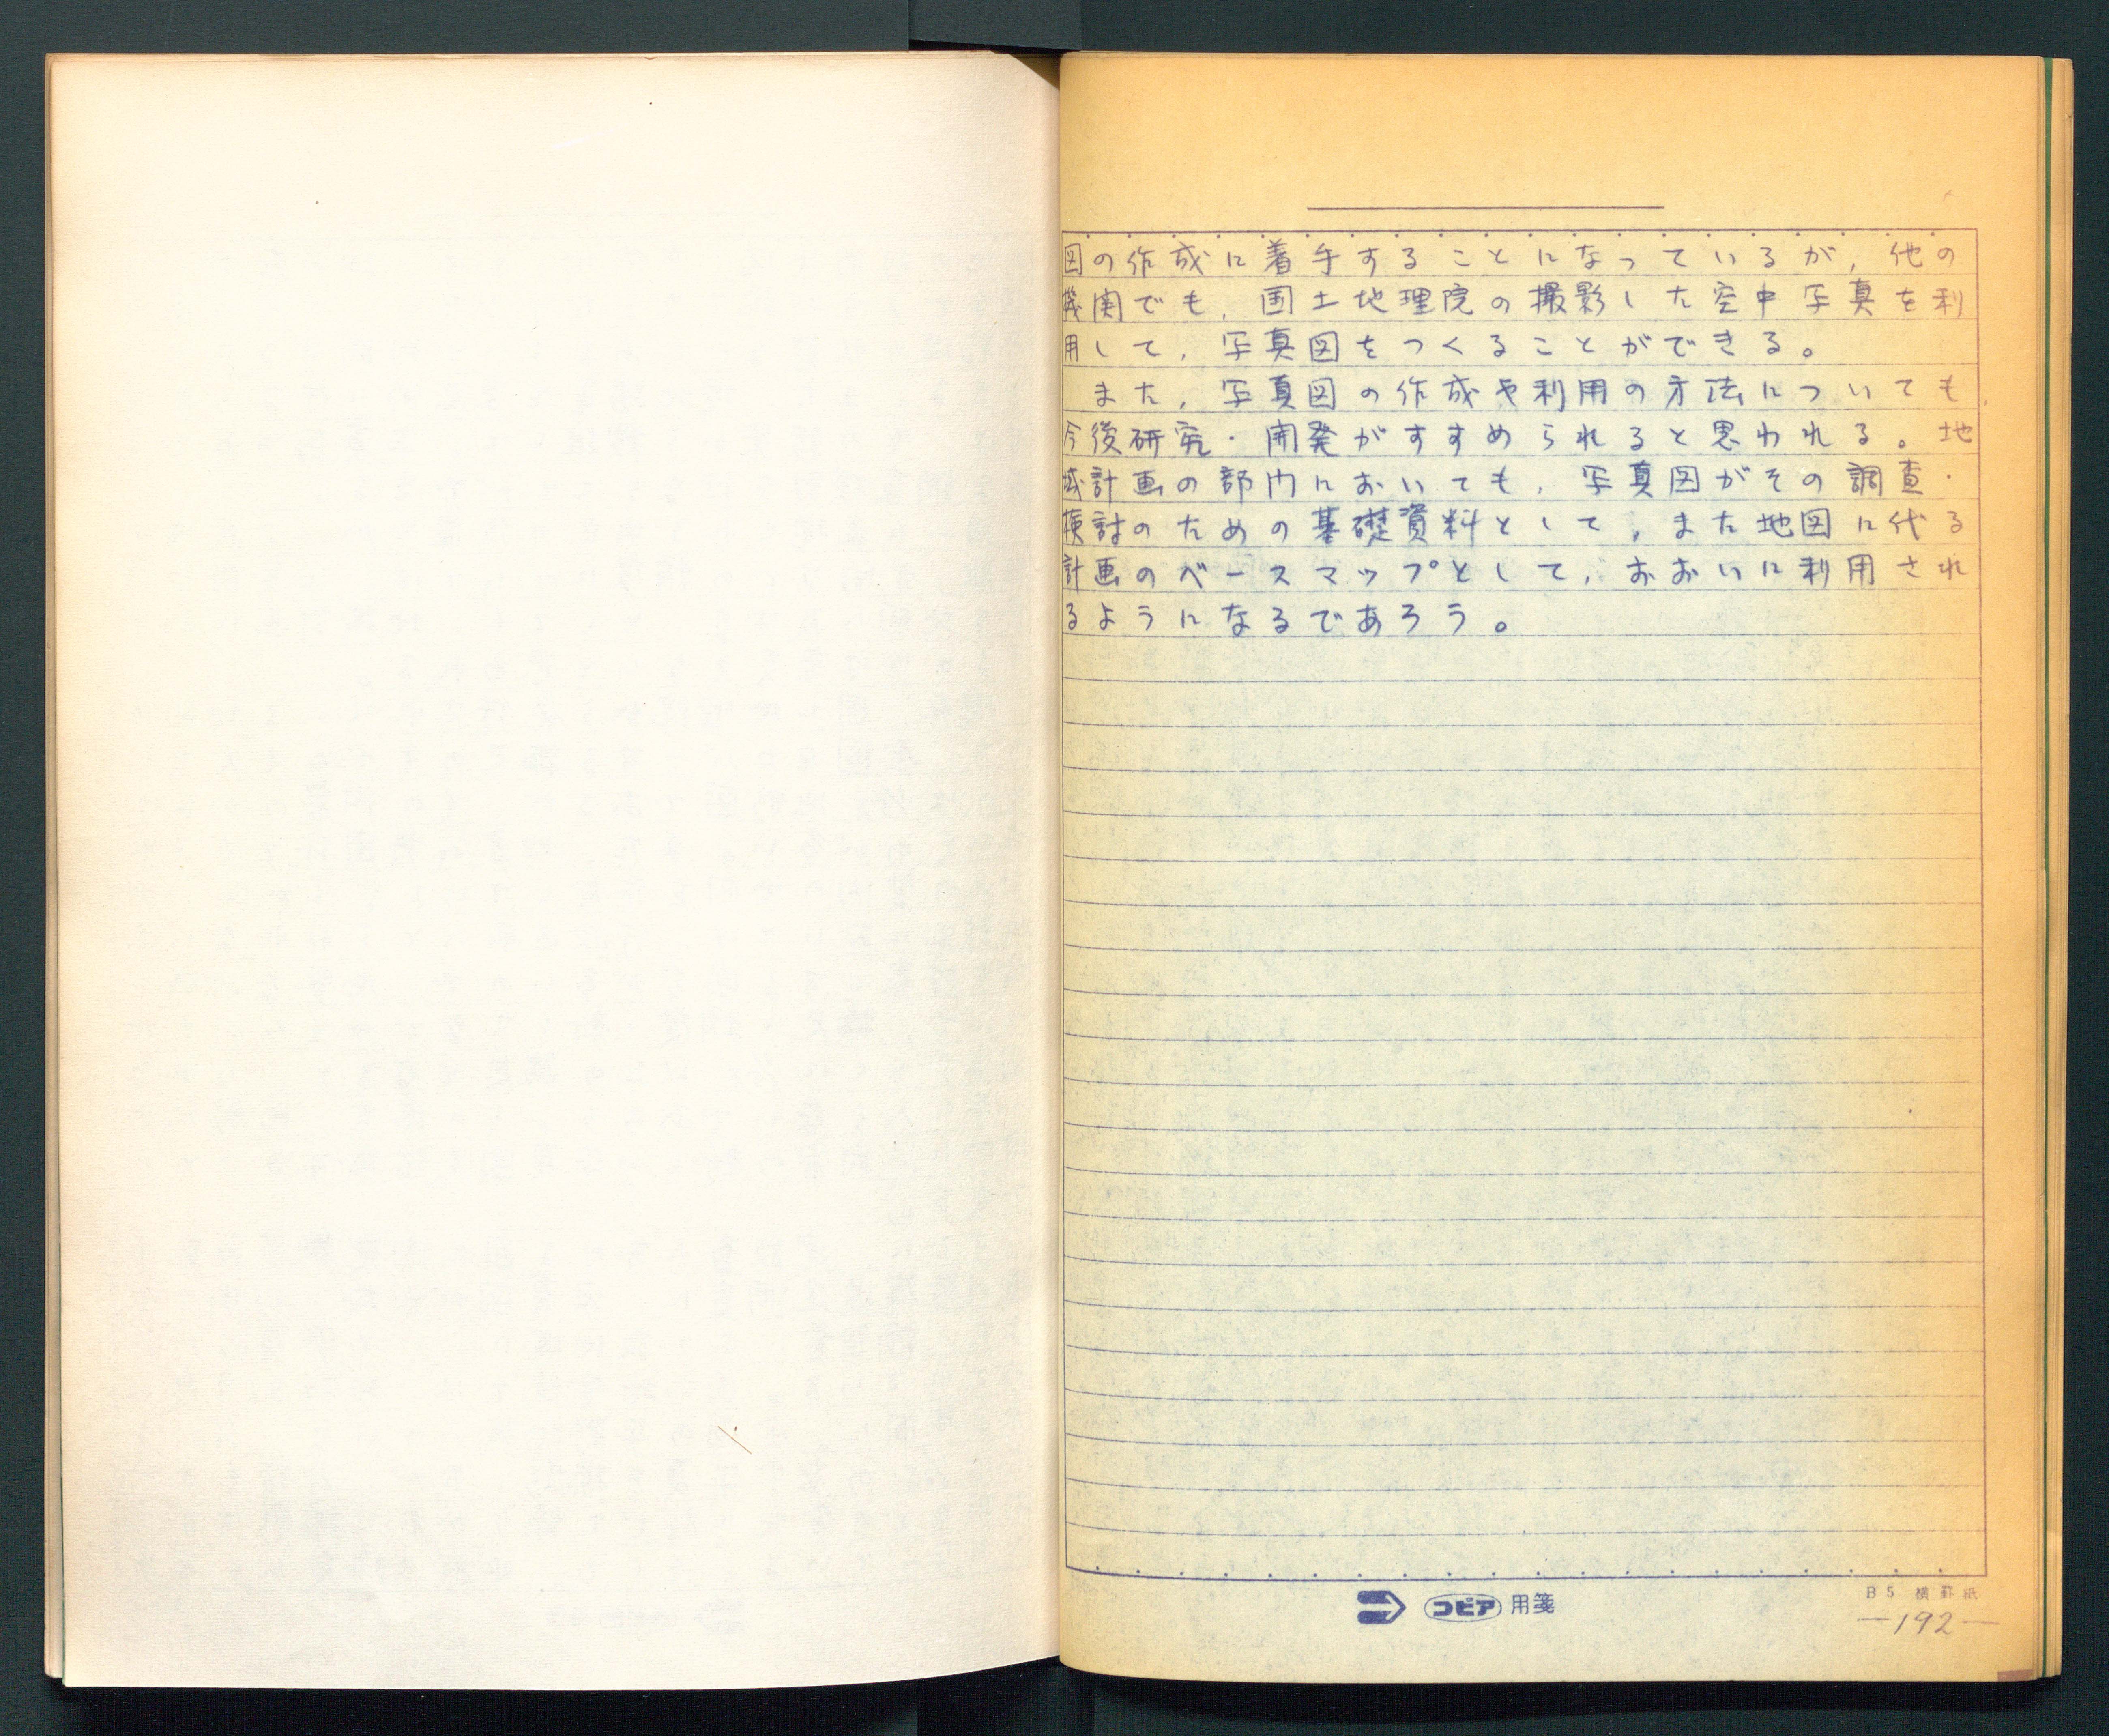 図の作成に着手することになっているが，他の
機関でも，国土地理院の撮影した空中写真を利
用して，写真図をつくることができる。
また，写真図の作成や利用の方法についても，
今後研究・開発がすすめられると思われる。地
域計画の部内においても，写真図がその調査・
検討のための基礎資料として，また地図に代る
計画のベースマップとして，おおいに利用され
るようになるであろう。
コピア用箋
B5 横罫紙
—192—